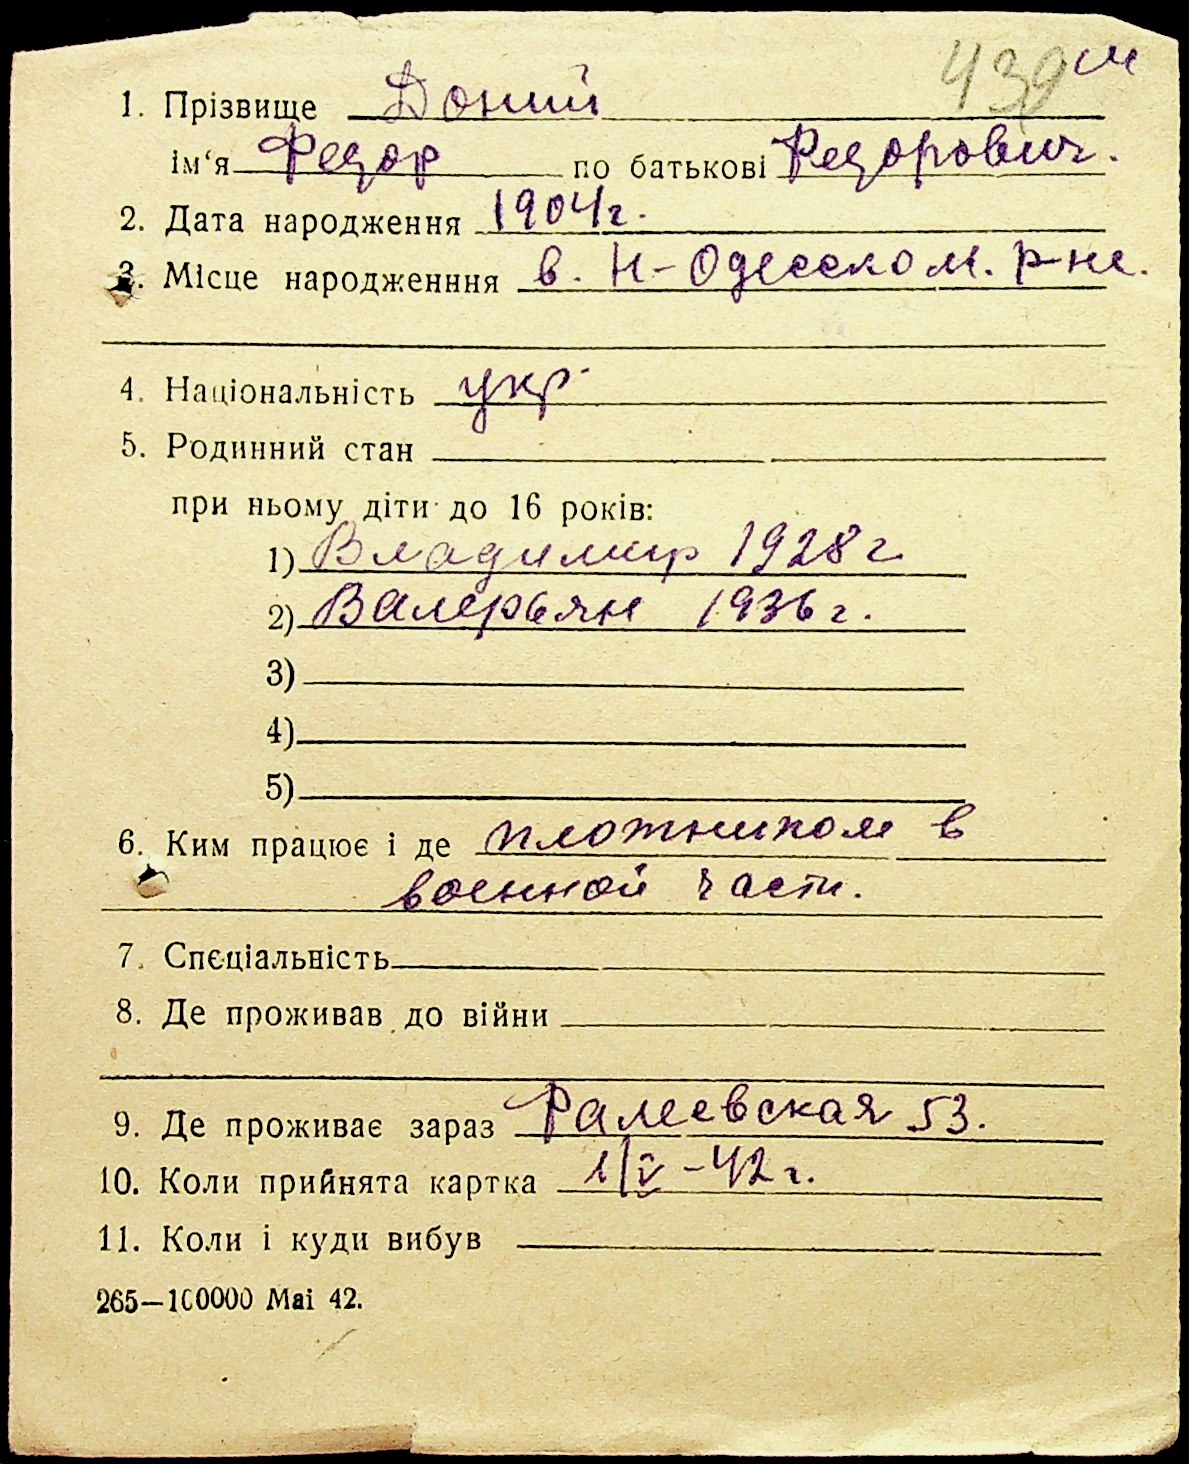 439 м
1. Прізвище Доний
ім‘я Федор по батькові Федорович.
2. Дата народження 1904 г.
3. Місце народженння в. Н-Одесском. р-не.
4. Національність укр.
5. Родинний стан
при ньому діти до 16 років:
1) Владимир 1928 г
2) Валерьян 1936 г.
3)
4)
5)
6. Ким працює і де плотником в
военной части.
7. Спєціальність
8. Де проживав до війни
9. Де проживає зараз Фалеевская 53.
10. Коли прийнята картка 1/V-42 г.
11. Коли і куди вибув
265—100000 Mai 42.